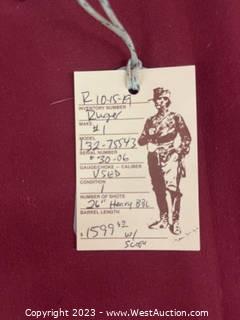 R 10-15-19
INVENTORY NUMBER
Ruger
MAKE
#1
MODEL
132-75543
SERIAL NUMBER
30-06
GAUGE/CHOKE - CALIBER
USED
CONDITION
1
NUMBER OF SHOTS
26" Henry BBL
BARREL LENGTH
$1599 w/
Scope
© 2023 - WestAuction.com